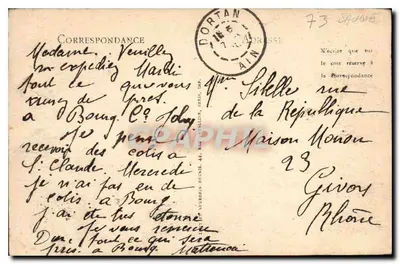 CORRESPONDANCE
Madame. Veuillez
m'expediez Mardi
tout ce que vous
aurez de pres.
à Bourg. Cie
Je pense
recevoir des colis à
St Claude. Mercredi
je n'ai pas eu de
colis à Bourg
j'ai été très étonné
Je vous remercie
Donc tout ce qui sera
pres. à Bourg.
DORTAN
AIN
73
N'écrire que sur
le côté réservé à
la correspondance
Mme Sibelle rue
de la République
Maison
23
Givors
Rhône